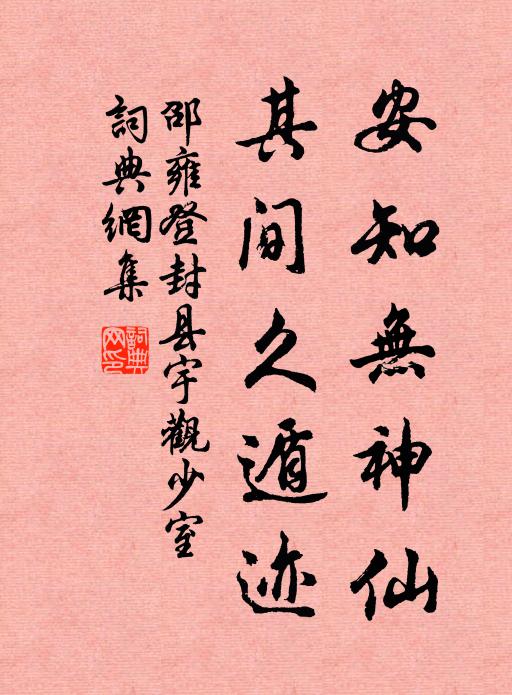 安知無神仙
其间久遁迹
邵雍登封县宇觀少室
詞典網集
詞典網印